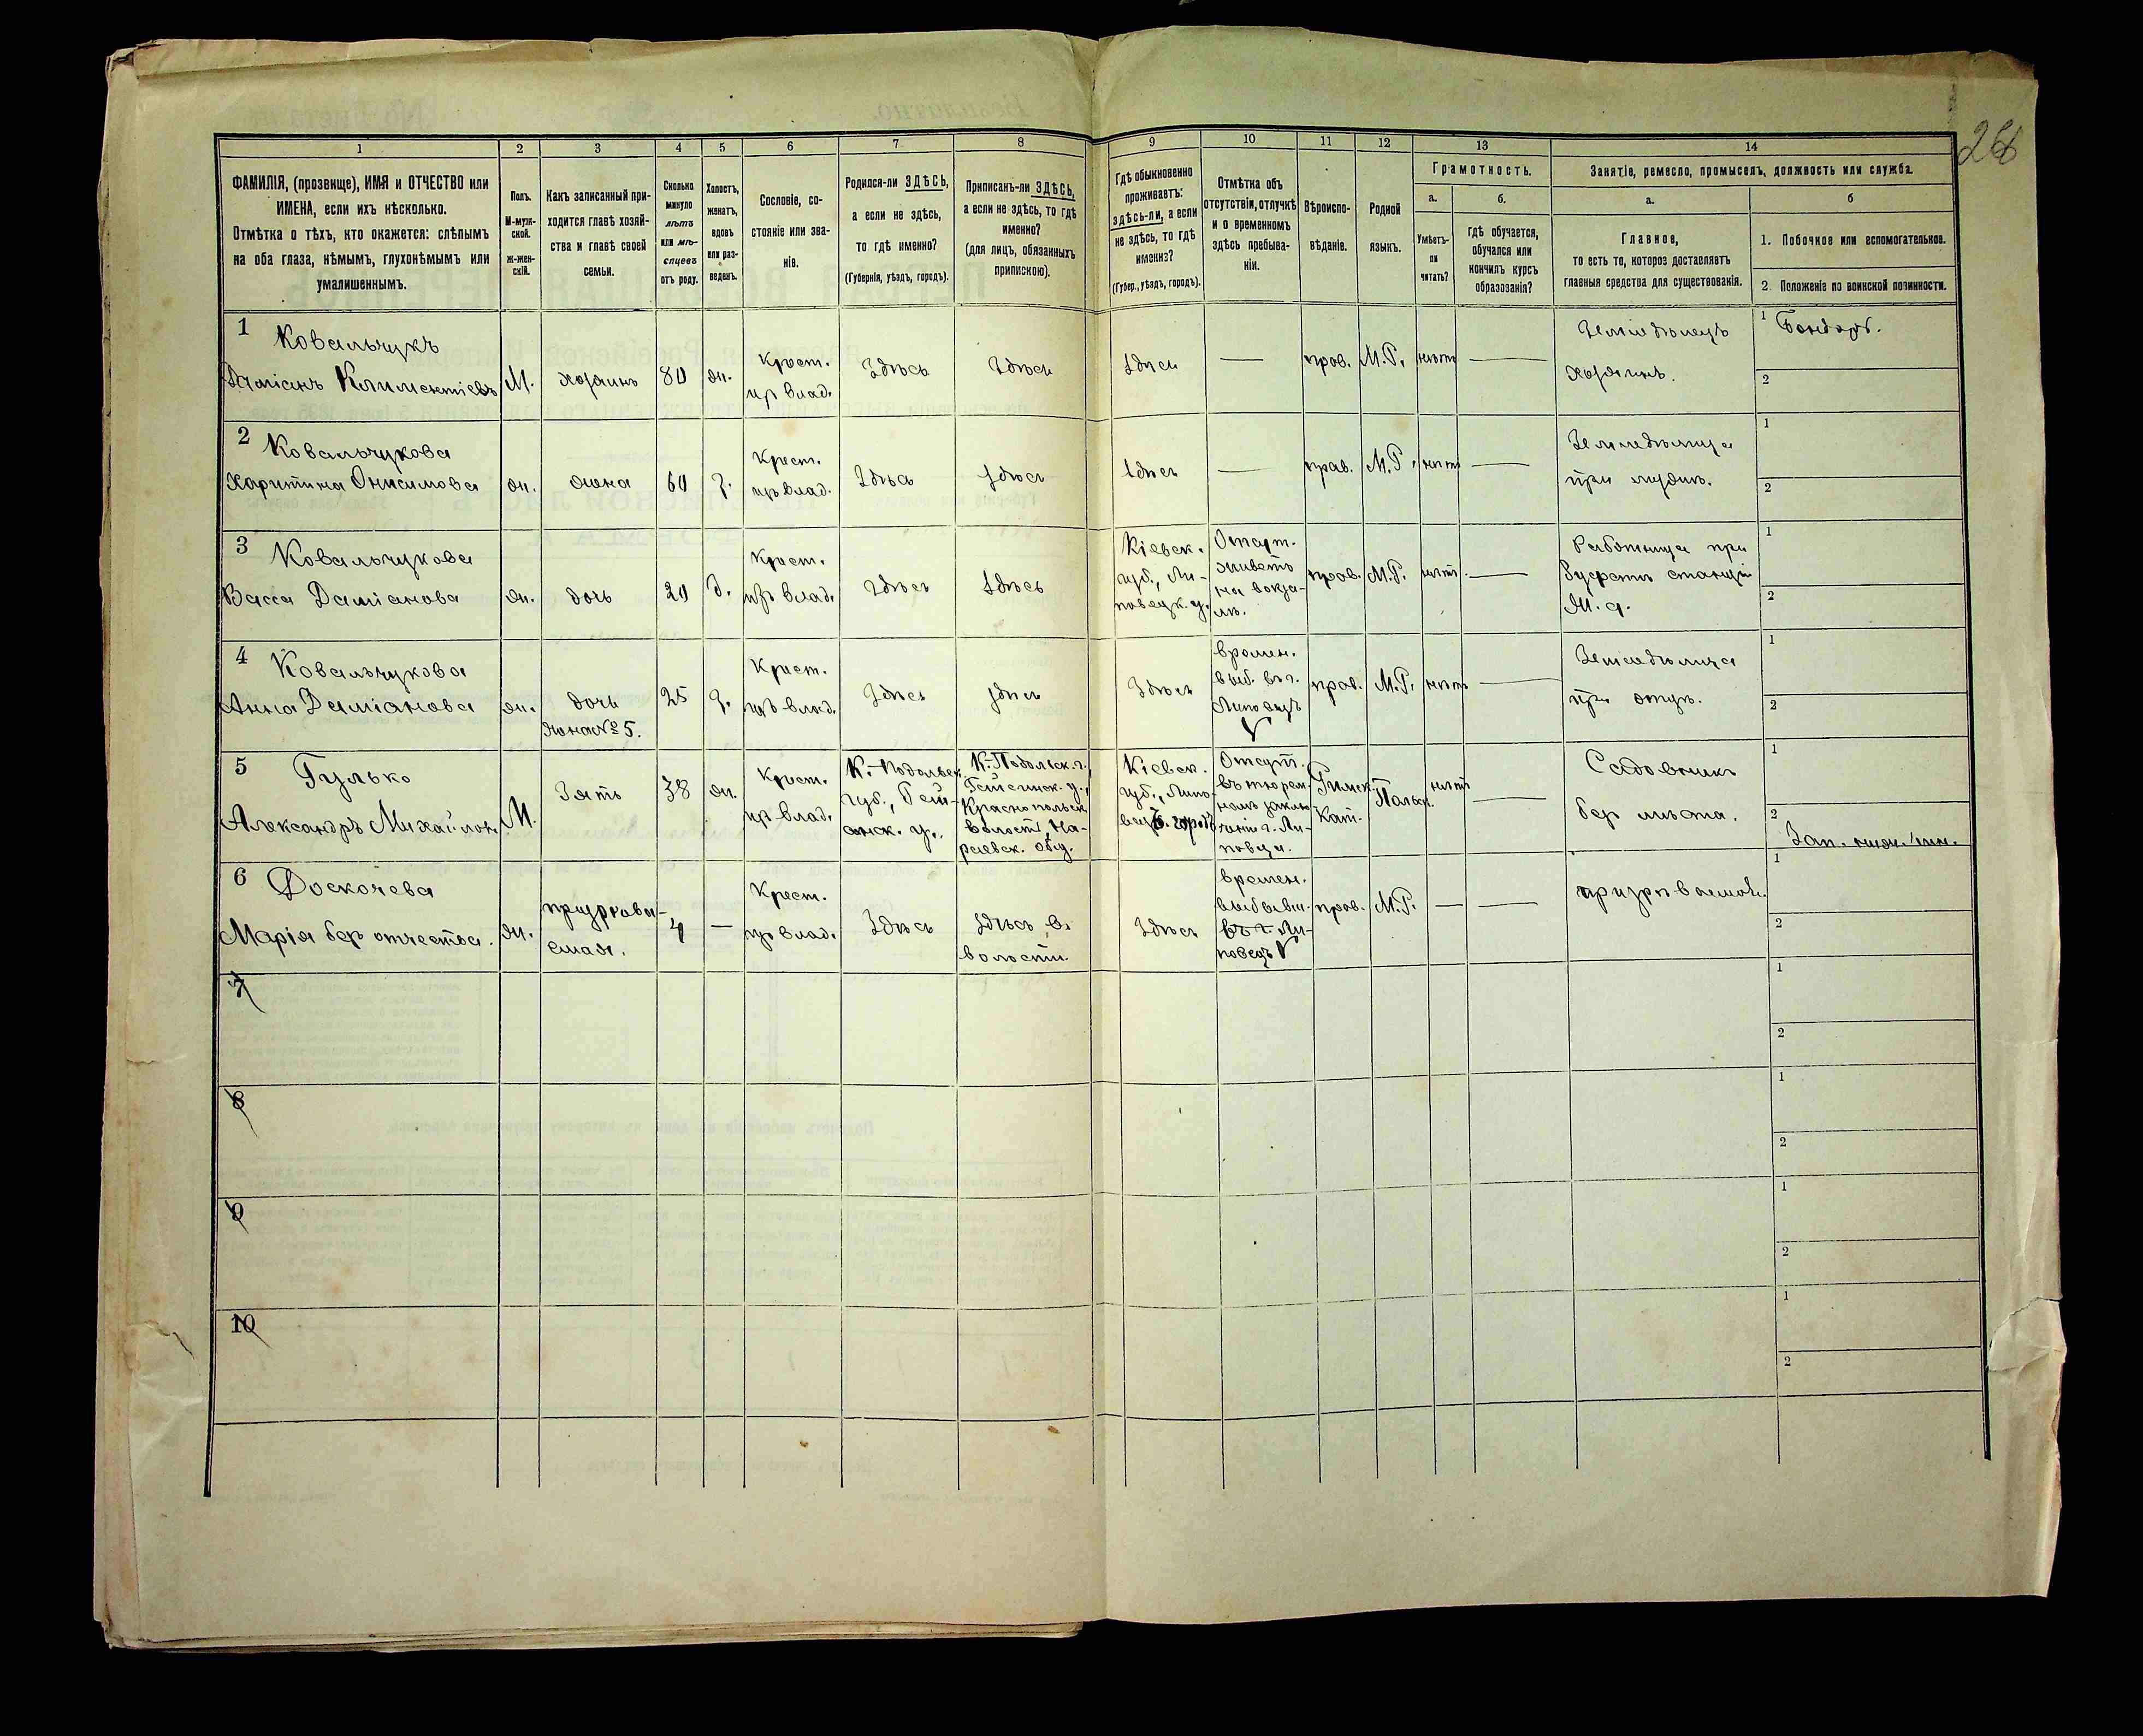 268
1
2
3
4
5
6
7
8
9
10
11
12
13
14
ФАМИЛІЯ, (прозвище), ИМЯ и ОТЧЕСТВО или
ИМЕНА, если ихъ нѣсколько.
Отмѣтка о тѣхъ, кто окажется: слѣпымъ
на оба глаза, нѣмымъ, глухонѣмымъ или
умалишеннымъ.
Полъ.
М-муж-
ской.
ж-жен-
скій.
Какъ записанный при-
ходится главѣ хозяй-
ства и главѣ своей
семьи.
Сколько
минуло
лѣтъ
или мѣ-
сяцевъ
отъ роду.
Холостъ,
женатъ,
вдовъ
или раз-
веденъ.
Сословіе, со-
стояніе или зва-
ніе.
Родился-ли ЗДѢСЬ,
а если не здѣсь,
то гдѣ именно?
(Губернія, уѣздъ, городъ).
Приписанъ-ли ЗДѢСЬ,
а если не здѣсь, то гдѣ
именно?
(для лицъ, обязанныхъ
припискою).
Гдѣ обыкновенно
проживаетъ:
здѣсь-ли, а если
не здѣсь, то гдѣ
именно?
(Губер., уѣздъ, городъ).
Отмѣтка объ
отсутствіи, отлучкѣ
и о временномъ
здѣсь пребыва-
ніи.
Вѣроиспо-
вѣданіе.
Родной
языкъ.
Грамотность.
а.
б.
Умѣетъ-
ли
читать?
гдѣ обучается,
обучался или
кончилъ курсъ
образованія?
Занятіе, ремесло, промыселъ, должность или служба.
а.
б
Главное,
то есть то, которое доставляетъ
главныя средства для существованія.
1. Побочное или вспомогательное.
2. Положеніе по воинской повинности.
1 Ковальчукъ
Даміанъ Климентіевъ М. хозяинъ 80 ж. Крест. изъ влад. Здѣсь Здѣсь Здѣсь — прав. М.Р. нѣтъ — Земледѣлецъ хозяинъ. 1 Бондарь.
2
2 Ковальчукова
Харитина Онисимова ж. жена 60 з. Крест. изъ влад. Здѣсь Здѣсь Здѣсь — прав. М.Р. нѣтъ — Земледѣлица при мужѣ. 1
2
3 Ковальчукова
Васса Даміанова ж. дочь 20 д. Крест. изъ влад. Здѣсь Здѣсь Кіевск. губ., Ли-повецк. у. Отсут. живетъ на вокза-лѣ. прав. М.Р. нѣтъ. — Работница при буфетѣ станціи 1
2
4 Ковальчукова
Анна Даміанова ж. дочь жена № 5. 25 з. Крест. изъ влад. Здѣсь Здѣсь Здѣсь времен. выб. въ г. Липовецъ прав. М.Р. нѣтъ — Земледѣлица при отцѣ. 1
2
5 Гулько
Александръ Михайлов. М. Зять 38 ж. Крест. изъ влад. К.-Подольск. губ., Гай-синск. у. К.-Подольск. г., Гайсинск. у., Краснопольск. волости, На-раевск. общ. Кіевск. губ., Липо- Отсут. въ тюрем-номъ заклю-ченіи г. Ли-повца. Римск. Кат. Польск. нѣтъ — Садовникъ безъ мѣста. 1
2
6 Доскочева
Марія безъ отчества. ж. призрѣва-емая. 4 — Крест. изъ влад. Здѣсь Здѣсь в. волости Здѣсь времен. выбывш. въ г. Ли-повецъ прав. М.Р. — — призрѣваемой. 1
2
7
1
2
8
1
2
9
1
2
10
1
2